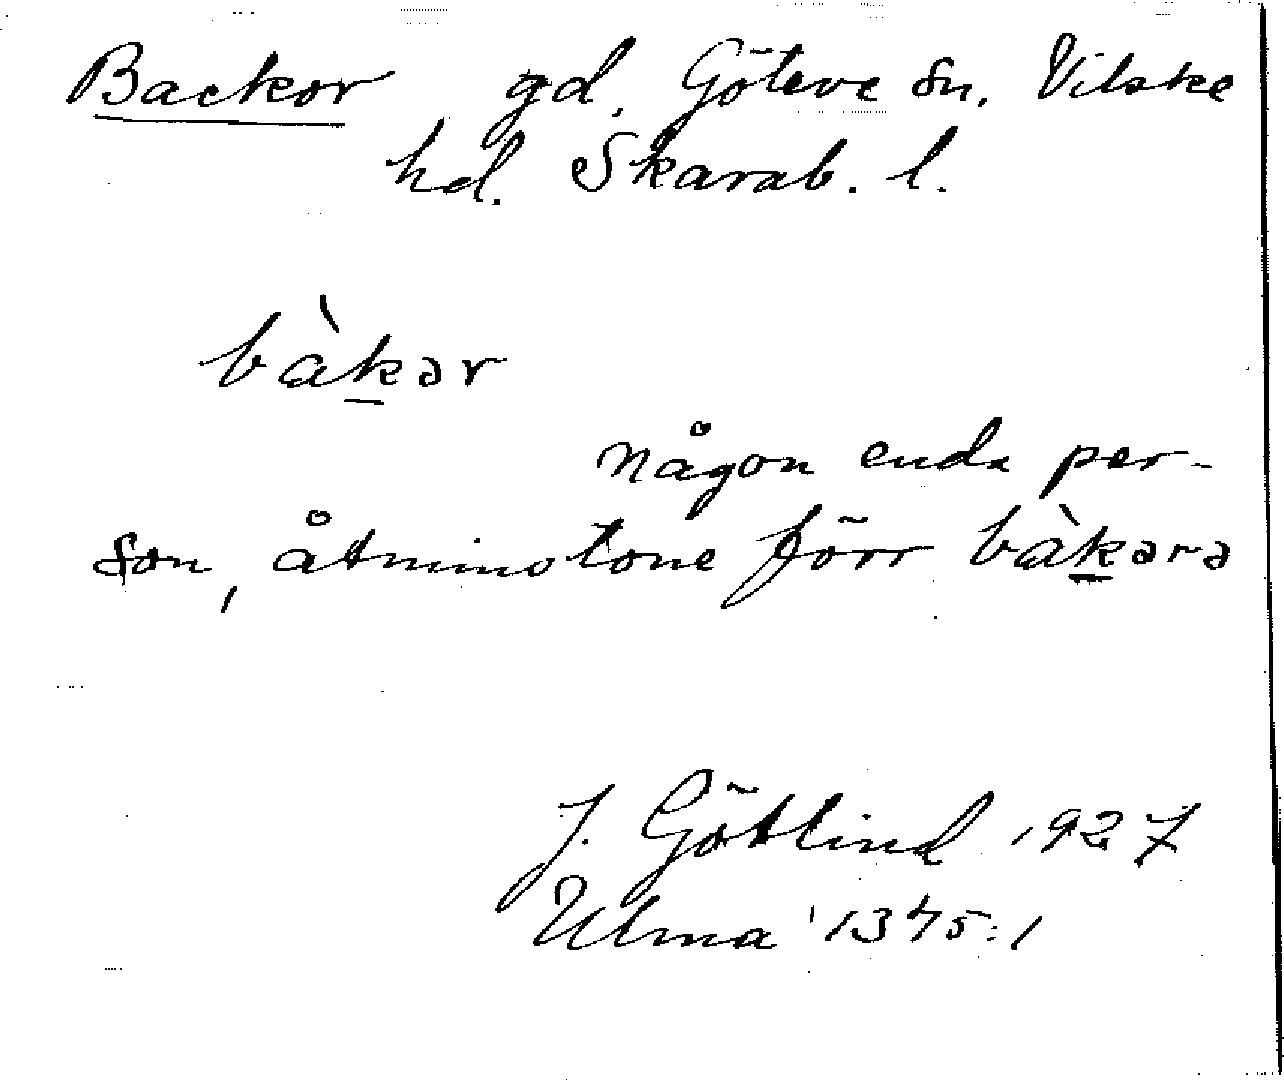 Backor gd. Göteve sn. Vilske
hd. Skarab. l.
bàk̲ər
någon enda per-
son, åtminstone förr bàk̲ərə
J. Götlind 1927
Ulma 1345:1